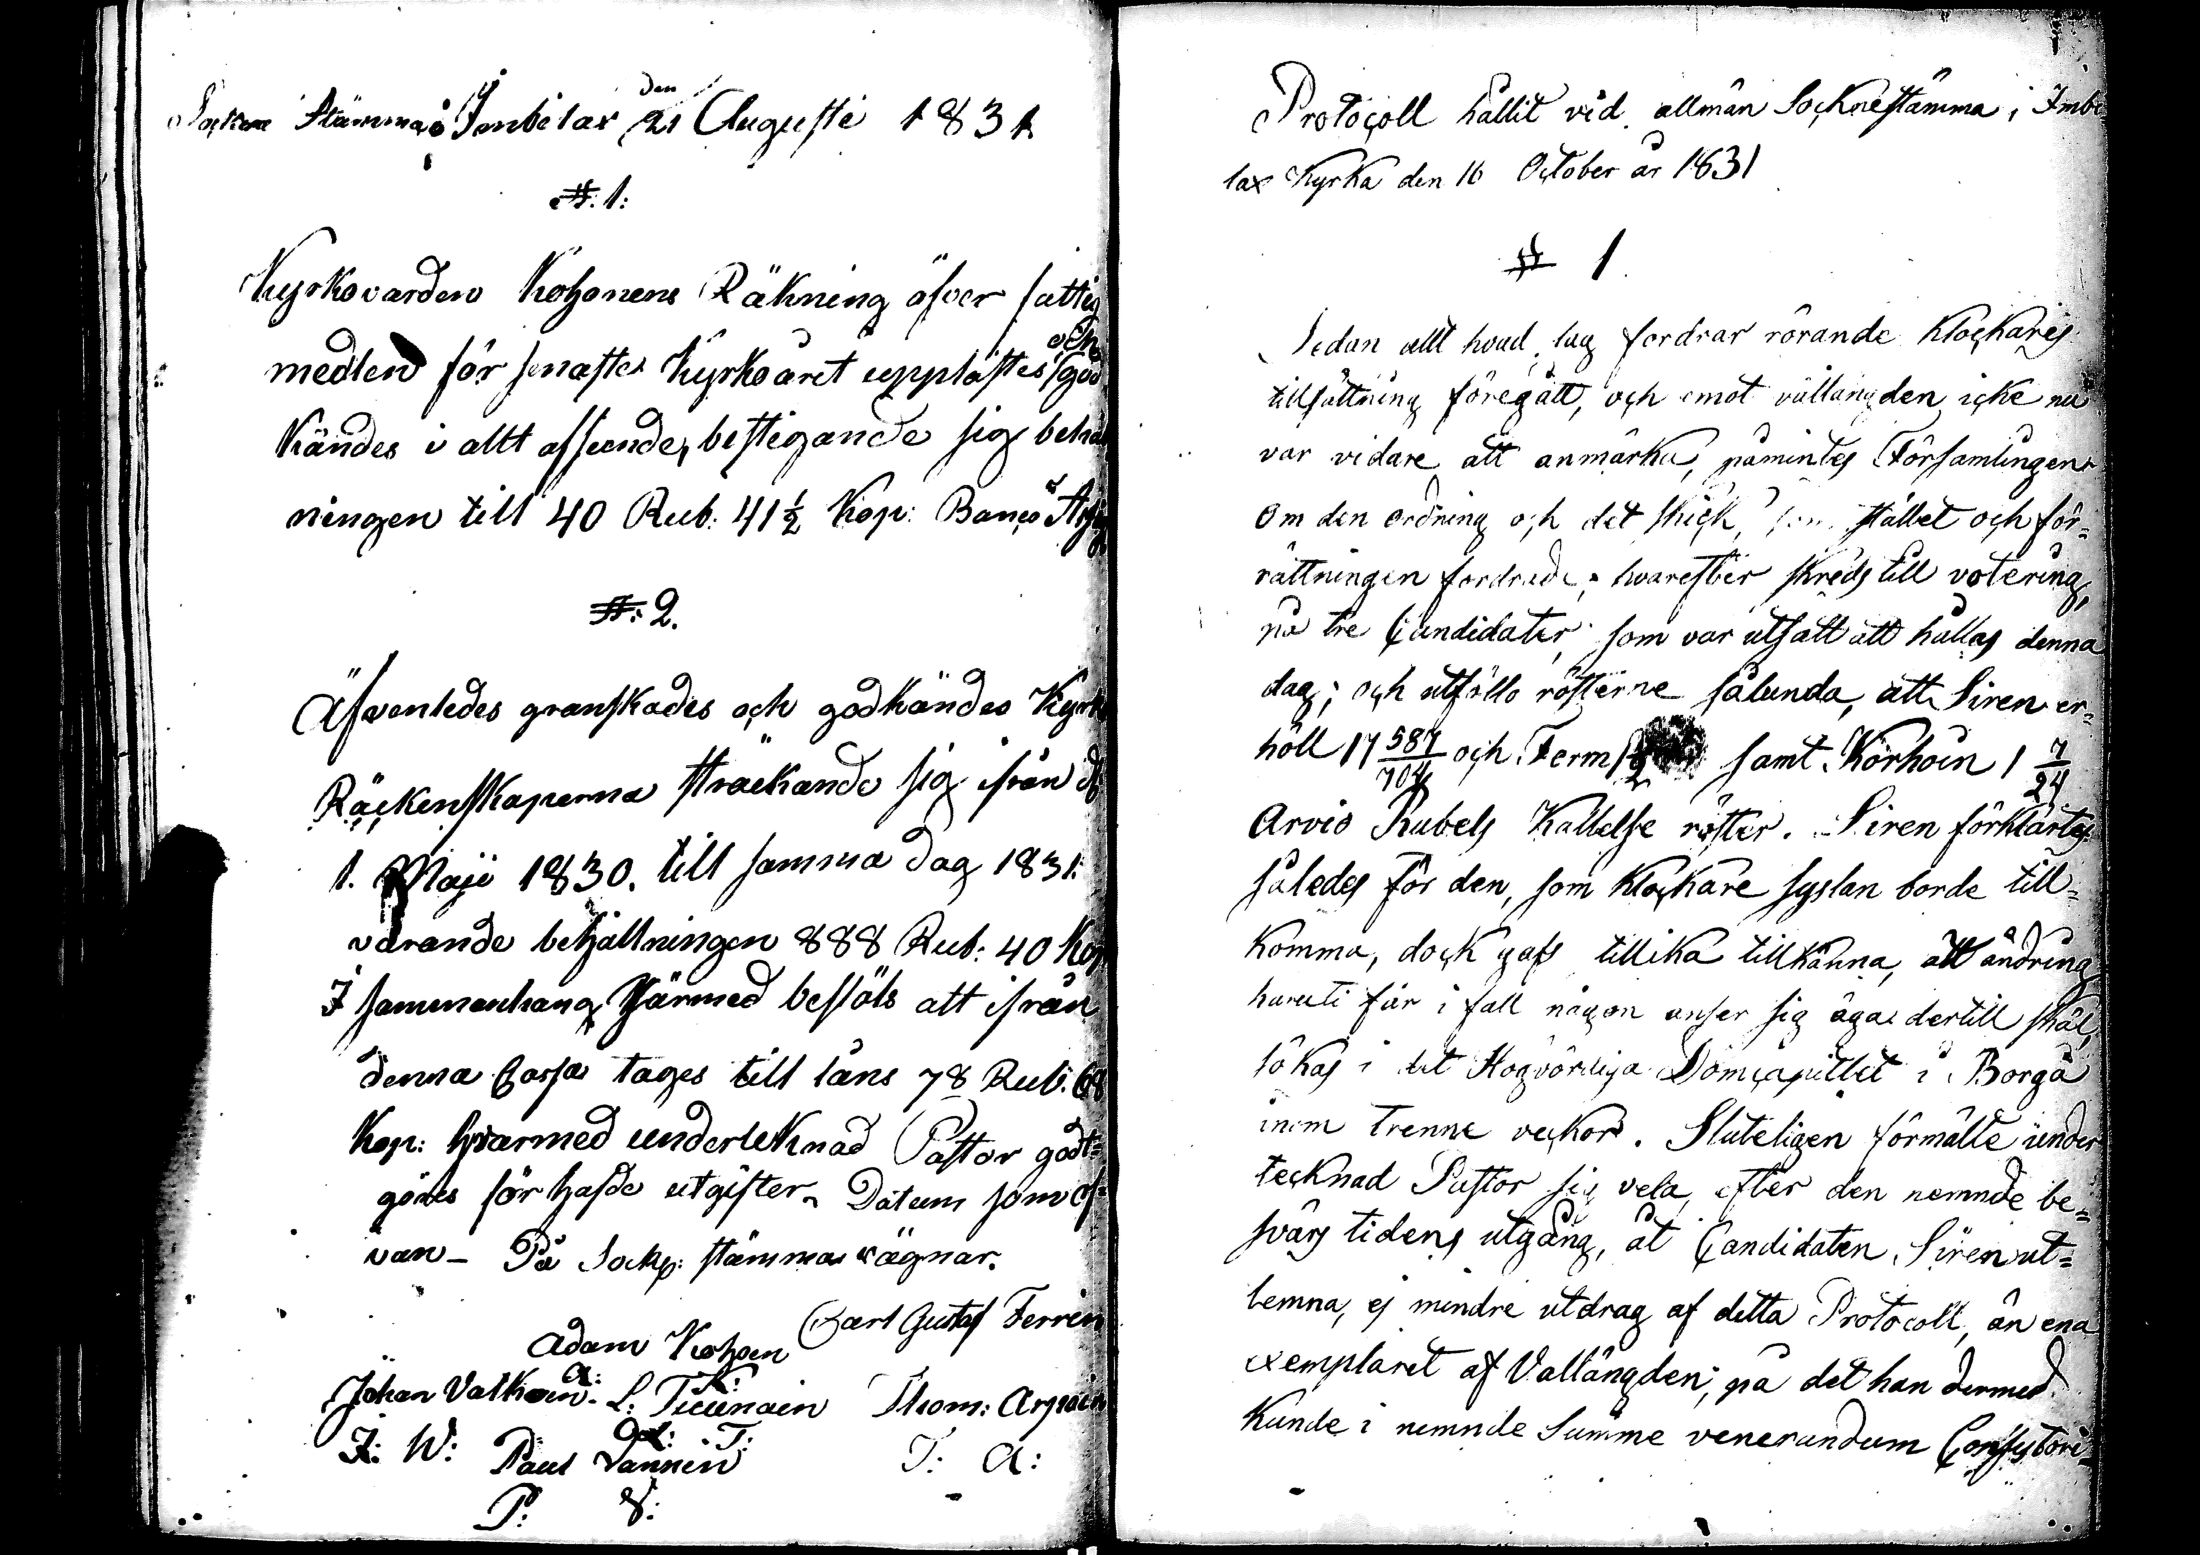 Sockne Stämma i Imbilax den 21 Augusti 1831.
#. 1:
Kyrkovärden Kohonens Räkning öfver fattig
medlen för senaste Kyrkoåret upplästes och god
kändes i allt afseende, bestigande sig behåll
ningen till 40 Rub: 41½ Kop: Banco Assig
#: 2.
Äfvenledes granskades och godkändes Kyrko
Räckenskaperna sträckande sig ifrån d
1. Maji 1830. till samma dag 1831:
varande behållningen 888 Rub: 40 Kop
I sammanhang härmed beslöts att ifrån
denna Cassa tages till låns 78 Rub: 68
Kop: hvarmed undertecknad Pastor godt=
göres för hafde utgifter. Datum som of=
van – På Sockn: stämmas vägnar.
Carl Gustaf Ferrin
Adam Kohoen
A: K:
Johan Valkoin. L. Tiuenain Thom: Arpain
J: W: L: T: T: A:
Paul Vannin
P: V:
Protocoll hållit vid allmän Socknestämma i Imbi
lax Kyrka den 16 October år 1831
# 1
Sedan allt hvad lag fordrar rörande Klockares
tillsättning föregått, och emot vallängden icke nu
var vidare att anmärka, påmintes Församlingen
om den ordning och det skick, som stället och för=
rättningen fordrade; hvarefter skreds till votering,
på tre Candidater, som var utsatt att hållas denna
dag; och utföllo rösterne sålunda, att Siren er=
höll 17 587/704 och Ferm samt Körhöin 1 7/24
Arvid Rubels Kallelse röster. Siren förklartes
således för den, som Klockare syslan borde till=
komma, dock gafs tillika tillkänna, att ändring
haruti får i fall någon anser sig äga dertill skäl,
sökas i det Högvördiga Domcapitlet i Borgå
inom trenne veckor. Sluteligen förmälte under
tecknad Pastor sig vela, efter den nemnde be=
svärs tidens utgång, åt Candidaten Siren ut=
lemna, ej mindre utdrag af detta Protocoll, än ena
exemplaret af Vallängden, på det han dermed
Kunde i nemnde Summe venerandum Consistori=